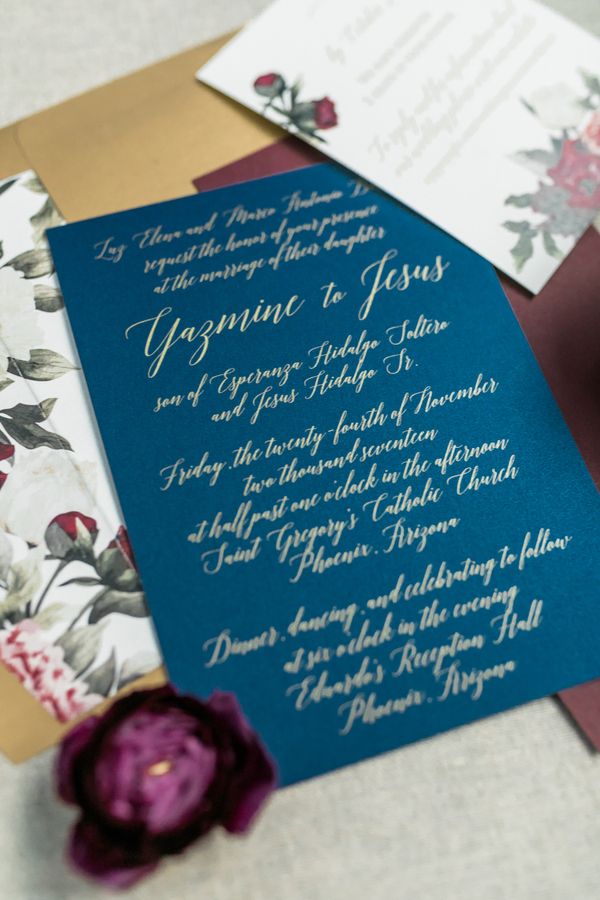 Luz Elena and Marco
request the honor of your presence
at the marriage of their daughter
Yazmine to Jesus
son of Esperanza Hidalgo Soltero
and Jesus Hidalgo Sr.
Friday, the twenty-fourth of November
two thousand seventeen
at half past one o'clock in the afternoon
Saint Gregory's Catholic Church
Phoenix, Arizona
Dinner, dancing, and celebrating to follow
at six o'clock in the evening
Eduardo's Reception Hall
Phoenix, Arizona